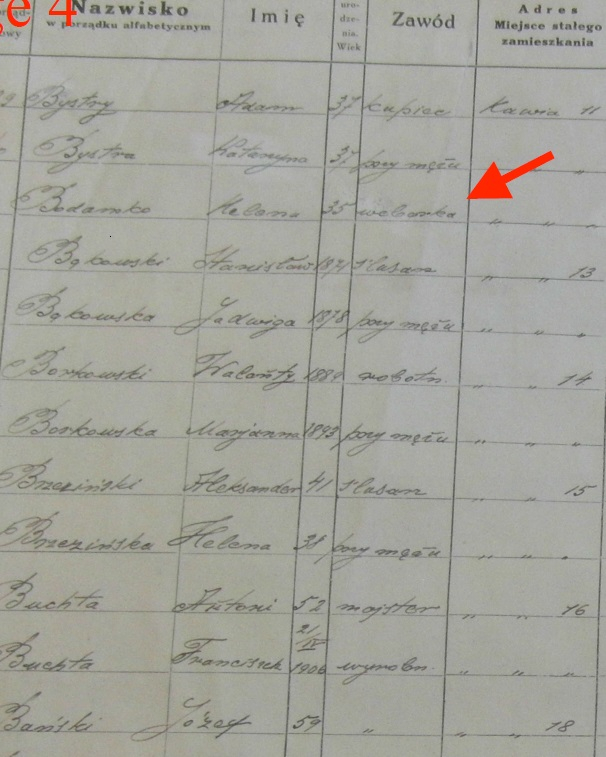 ge 4
Nazwisko w porządku alfabetycznym Imię uro- dze- nia. Wiek Zawód Adres Miejsce stałego zamieszkania
Bystry Adam 37 kupiec Kawia 11
Bystra Katarzyna 37 przy mężu " "
Bodamko Helena 35 " " "
Bąkowski Stanisław 1871 ślusarz " " 13
Bąkowska Jadwiga 1878 przy mężu " " "
Borkowski Walenty 1889 robotn. " " 14
Borkowska Marjanna 1893 przy mężu " " "
Brzeziński Aleksander 41 ślusarz " " 15
Brzezińska Helena 38 przy mężu " " "
Buchta Antoni 52 majster " " 16
Buchta Franciszek 21/IV 1906 wyrobn. " " "
Bański Józef 59 " " " 18